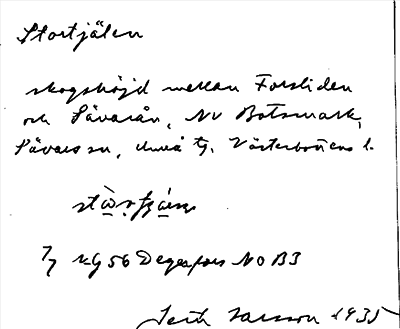 Stortjälen
skogshöjd mellan Forsliden
och Sävarån, NV Botsmark,
Sävars sn, Umeå tg. Västerbottens l.
7/7 KG 56 Degerfors NO B3
Seth Larsson 1935